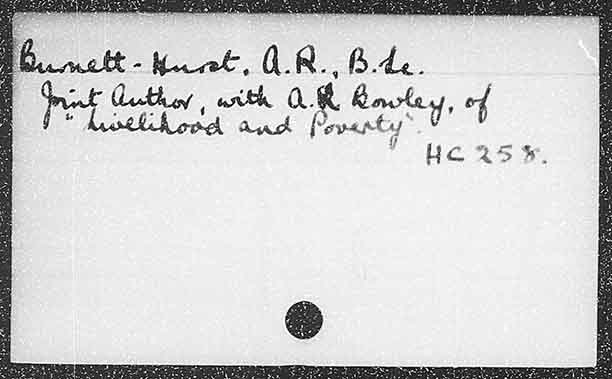 Burnett-Hurst, A.R., B.Sc.
Joint Author, with A.L. Bowley, of
"Livelihood and Poverty".
HC 258.